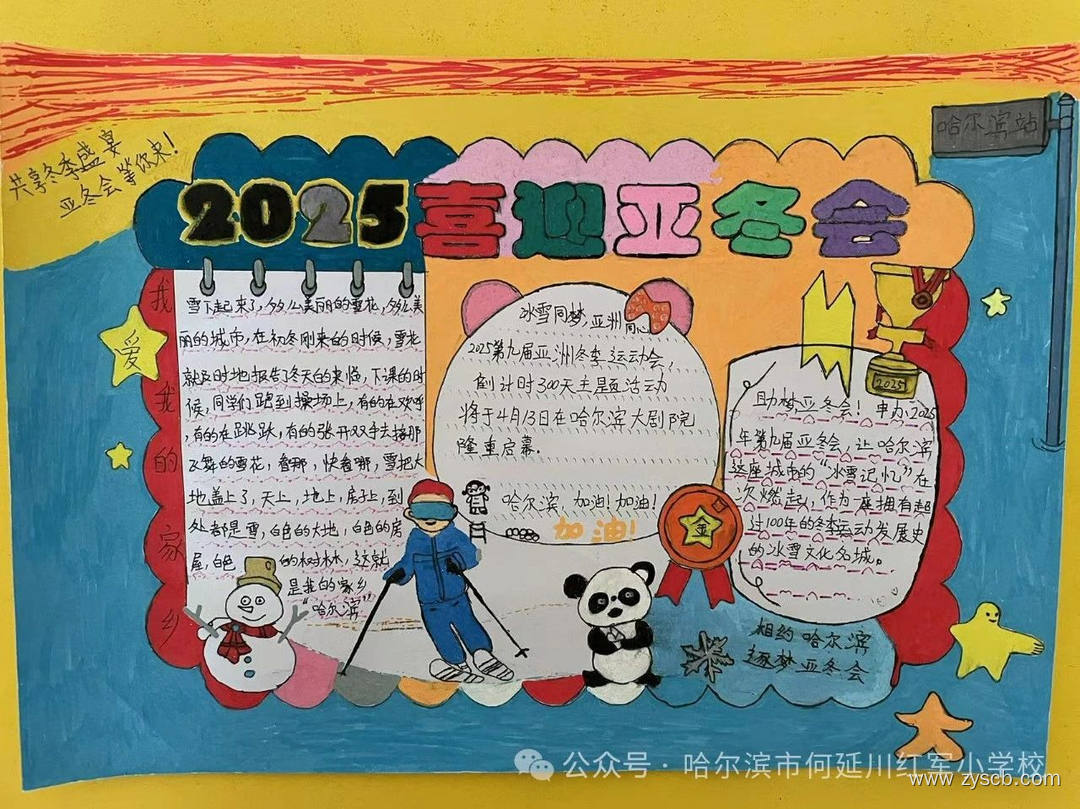 共享冬季盛宴
亚冬会等你来!
哈尔滨站
2025喜迎亚冬会
我爱我的家乡
雪下起来了,多么美丽的雪花,多么美
丽的城市,在初冬刚来的时候,雪花
就及时地报告冬天的来临,下课的时
候,同学们跑到操场上,有的在欢呼
,有的在跳跃,有的张开双手去接那
飞舞的雪花,看哪,快看哪,雪把大
地盖上了,天上,地上,房子上,到
处都是雪,白色的大地,白色的房
屋,白色的树林,这就
是我的家乡
“哈尔滨”
冰雪同梦,亚洲同心
2025第九届亚洲冬季运动会,
倒计时300天主题活动
将于4月13日在哈尔滨大剧院
隆重启幕.
哈尔滨,加油!加油!
加油!
2025
助梦亚冬会!申办2025
年第九届亚冬会,让哈尔滨
这座城市的“冰雪记忆”在
次燃起,作为一座拥有超
过100年的冬季运动发展史
的冰雪文化名城。
金
相约哈尔滨
逐梦亚冬会
公众号·哈尔滨市何延川红军小学校
www.zyscb.com